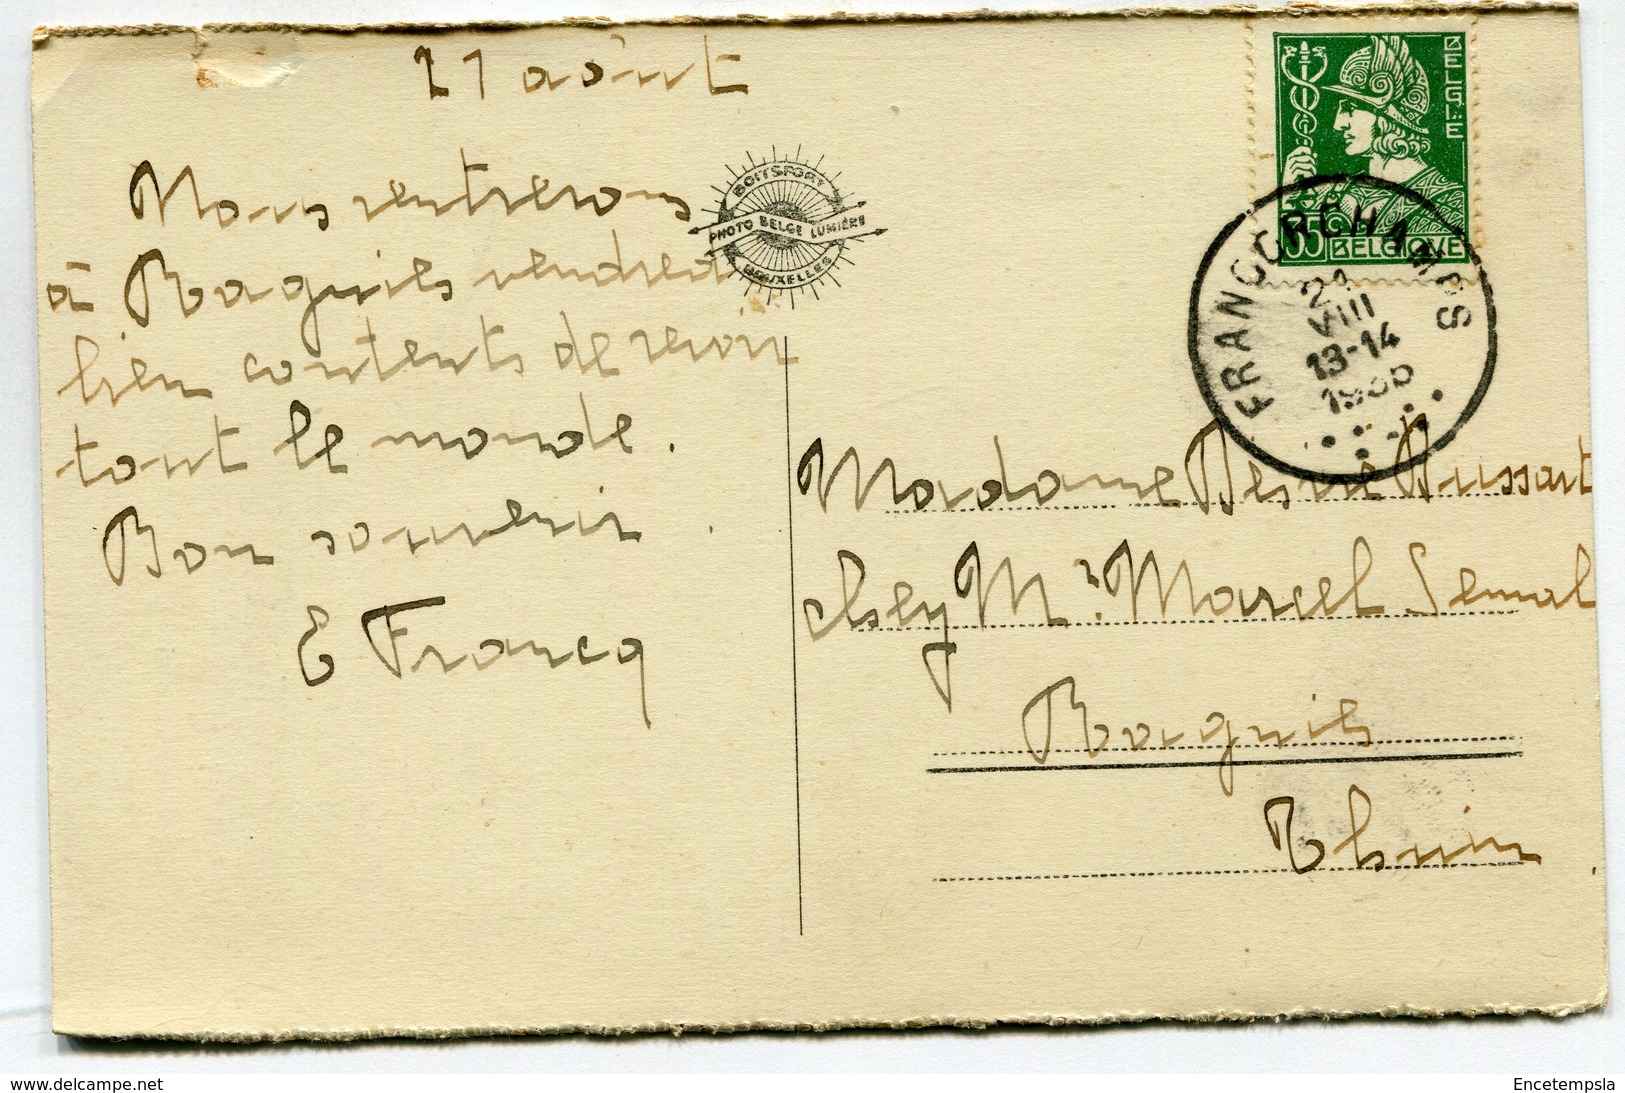 21 août
Nous rentrerons
à Ragnies vendredi
bien contents de revoir
tout le monde.
Bon souvenir.
E Francq
BOITSFORT
PHOTO BELGE LUMIÈRE
BRUXELLES
BELGIE
35 BELGIQUE
FRANCORCHAMPS
VIII
13-14
Madame Dussart
chez Mr. Marcel Semal
Ragnies
Thuin.
delcampe.net
Encetempsla